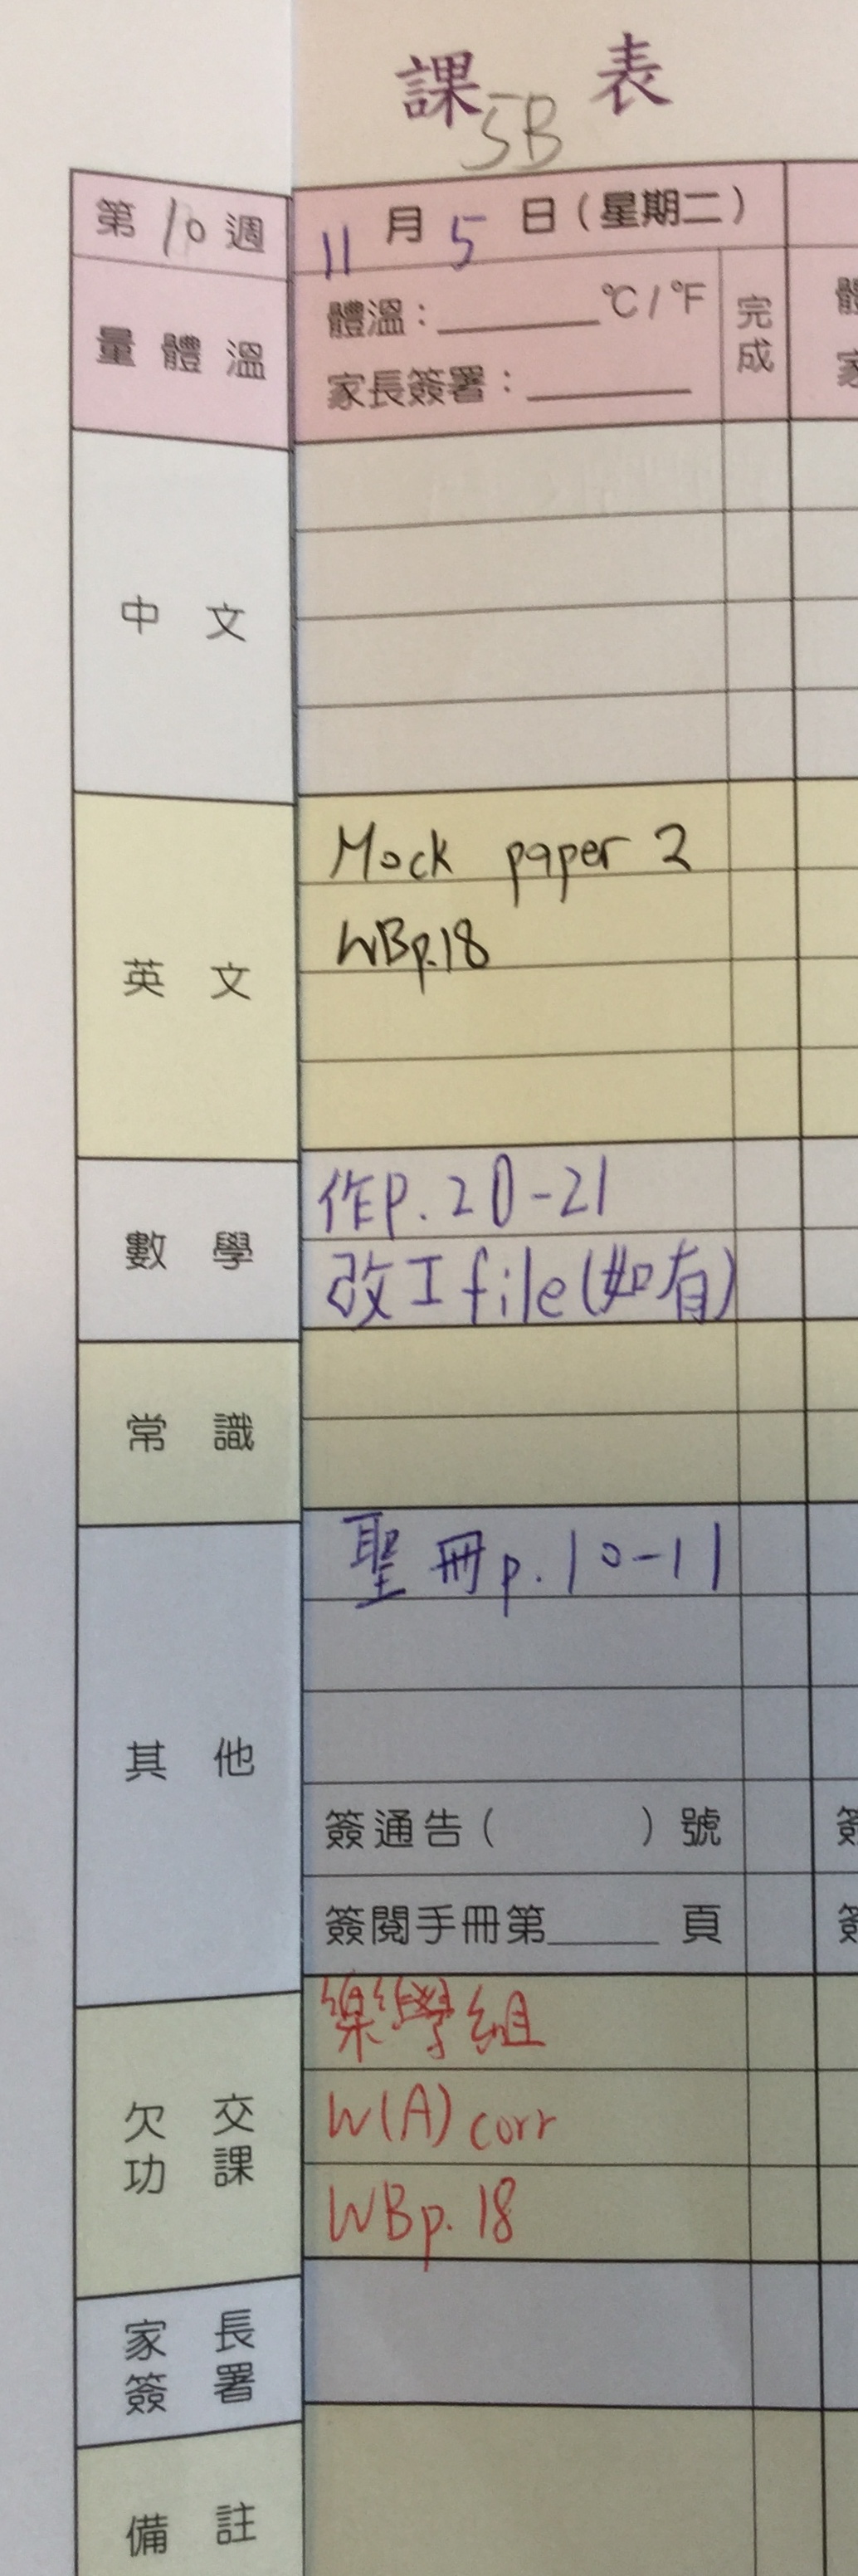 課 表
5B
第10週
11月5日（星期二）
量體溫
體溫：______°C / °F
家長簽署：______
完成
中文
英文
Mock paper 2
WBp.18
數學
作p.20-21
改工file(如有)
常識
其他
聖冊p.10-11
簽通告（ ）號
簽閱手冊第_____頁
欠交功課
樂學組
W(A) corr
WBp.18
家長簽署
備註